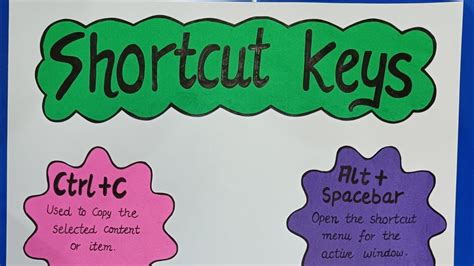 Shortcut Keys
Ctrl+C
Used to Copy the
selected content
or item.
Alt+
Spacebar
Open the shortcut
menu for the
active window.